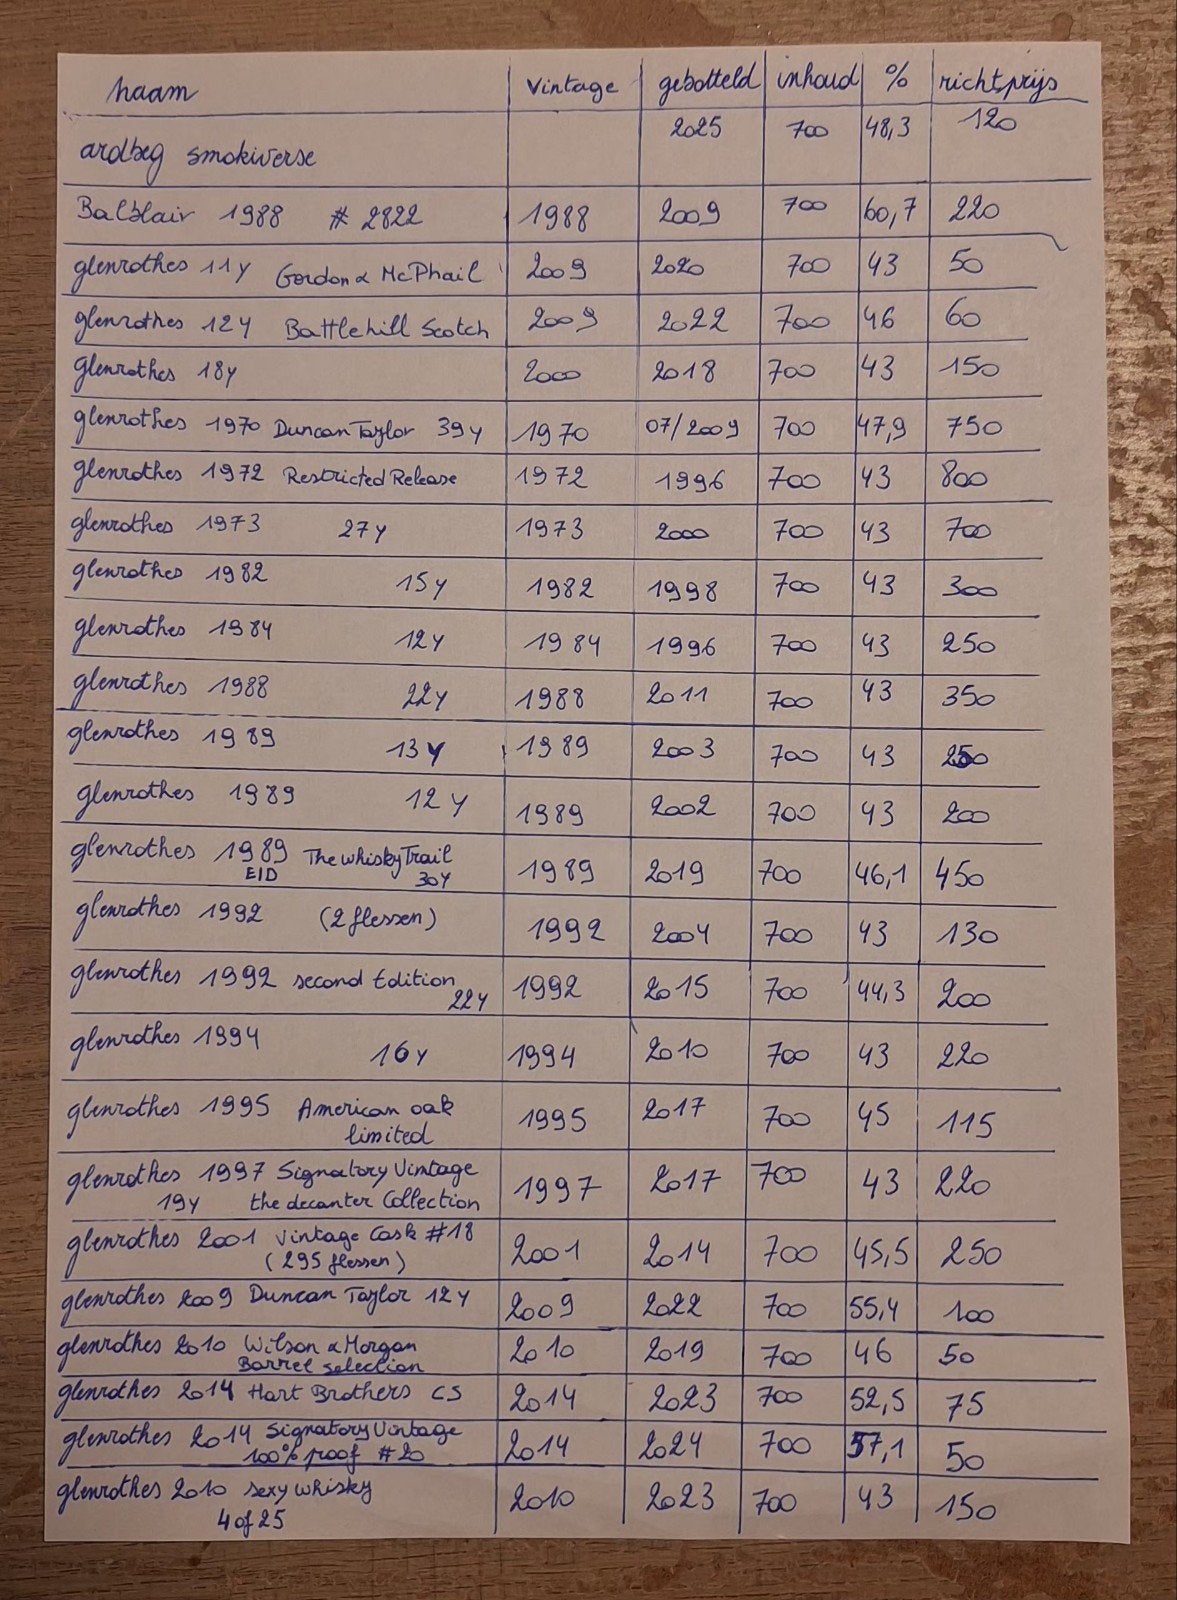 naam vintage gebotteld inhoud % richtprijs
ardbeg smokiverse 2025 700 48,3 120
Balblair 1988 # 2822 1988 2009 700 60,7 220
glenrothes 11y Gordon & McPhail 2009 2020 700 43 50
glenrothes 12y Battlehill Scotch 2009 2022 700 46 60
glenrothes 18y 2000 2018 700 43 150
glenrothes 1970 Duncan Taylor 39y 1970 07/2009 700 47,9 750
glenrothes 1972 Restricted Release 1972 1996 700 43 800
glenrothes 1973 27y 1973 2000 700 43 700
glenrothes 1982 15y 1982 1998 700 43 300
glenrothes 1984 12y 1984 1996 700 43 250
glenrothes 1988 22y 1988 2011 700 43 350
glenrothes 1989 13y 1989 2003 700 43 250
glenrothes 1989 12y 1989 2002 700 43 200
glenrothes 1989 The whisky Trail 1989 2019 700 46,1 450
EID 30y
glenrothes 1992 (2 flessen) 1992 2004 700 43 130
glenrothes 1992 second Edition 1992 2015 700 44,3 200
22y
glenrothes 1994 16y 1994 2010 700 43 220
glenrothes 1995 American oak 1995 2017 700 45 115
limited
glenrothes 1997 Signatory Vintage 1997 2017 700 43 220
19y the decanter Collection
glenrothes 2001 vintage Cask #18 2001 2014 700 45,5 250
(295 flessen)
glenrothes 2009 Duncan Taylor 12y 2009 2022 700 55,4 100
glenrothes 2010 Wilson & Morgan 2010 2019 700 46 50
Barrel selection
glenrothes 2014 Hart Brothers CS 2014 2023 700 52,5 75
glenrothes 2014 Signatory Vintage 2014 2024 700 57,1 50
100% proof #20
glenrothes 2010 sexy whisky 2010 2023 700 43 150
4 of 25